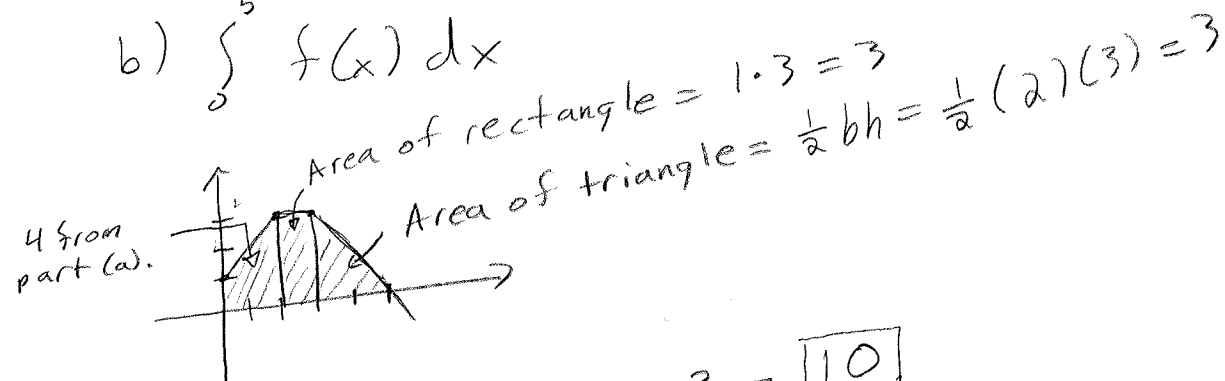 b) ∫₀⁵ f(x) dx
Area of rectangle = 1·3 = 3
Area of triangle = ½ bh = ½ (2)(3) = 3
4 from
part (a).
= 10